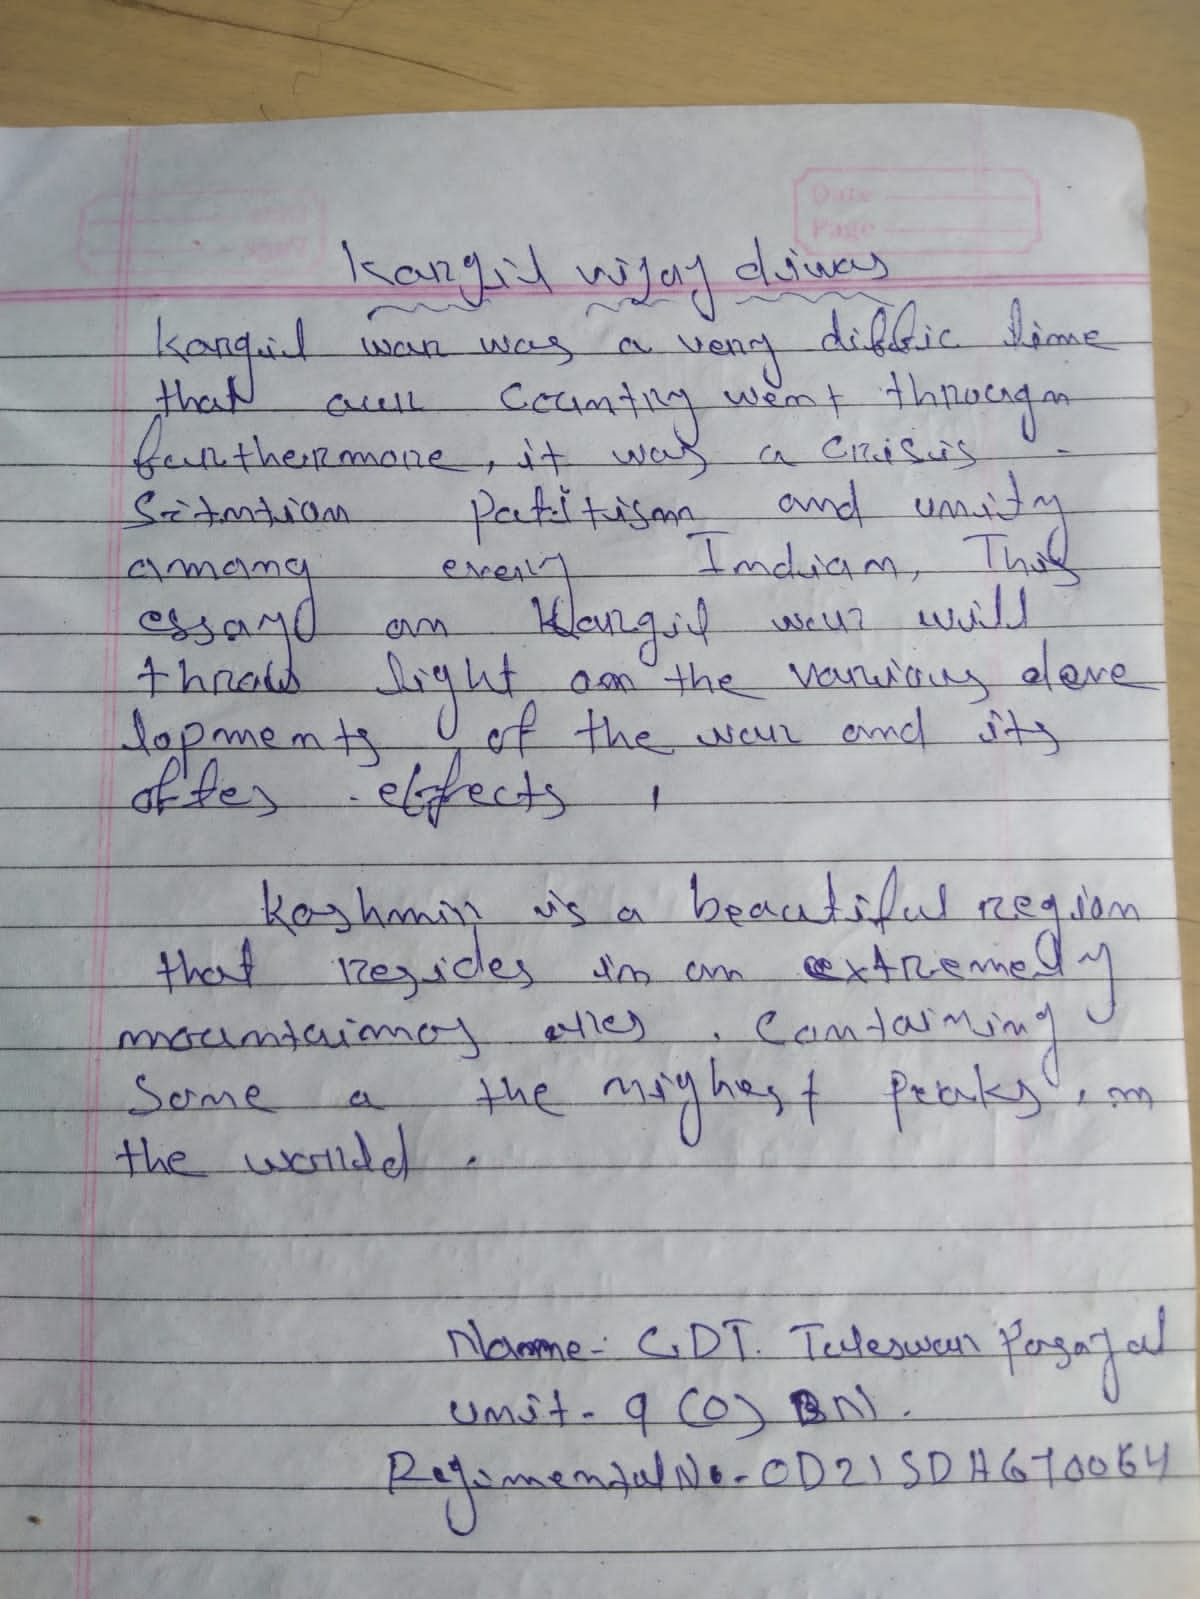 Kargil vijay diwas
Date
Page
Kargil war was a very diffic time
that our Country went through
furthermore, it was a crisis -
Sitution patitism and unity
among every Indian, This
essay on Kargil war will
throw light on the various deve
lopments of the war and its
after - effects .
Kashmir is a beautiful region
that resides in an extremely
mountainoy . Containing
Some a the highest peaks, in
the world .
Name:- CDT. Tuleswar
Unit - 9 (O) BN .
Regimental No - OD21SDA670064